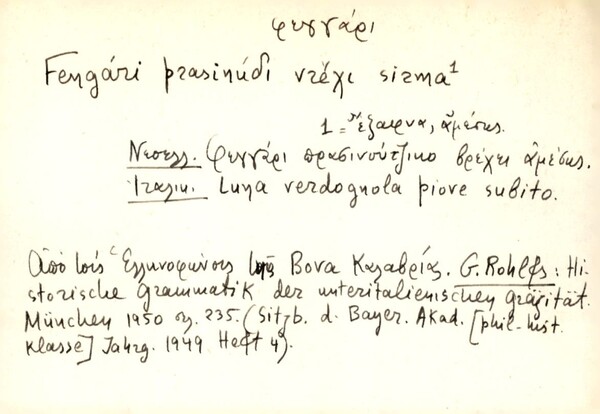 φεγγάρι
Fengári prasinúdi vréχi sirma¹
1 = "ἔξαιφνα, ἀμέσως.
Νεοελλ. Φεγγάρι πρασινούτζικο βρέχει ἀμέσως.
Ἰταλικ. Luna verdognola piove subito.
Ἀπό τούς Ἑλληνοφώνους τῆς Βονα Καλαβρίας. G. Rohlfs: Hi-
storische Grammatik der unteritalienischen gräzität.
München 1950 σ. 235. (Sitzb. d. Bayer. Akad. [phil-hist.
Klasse] Jahrg. 1949 Heft 4).